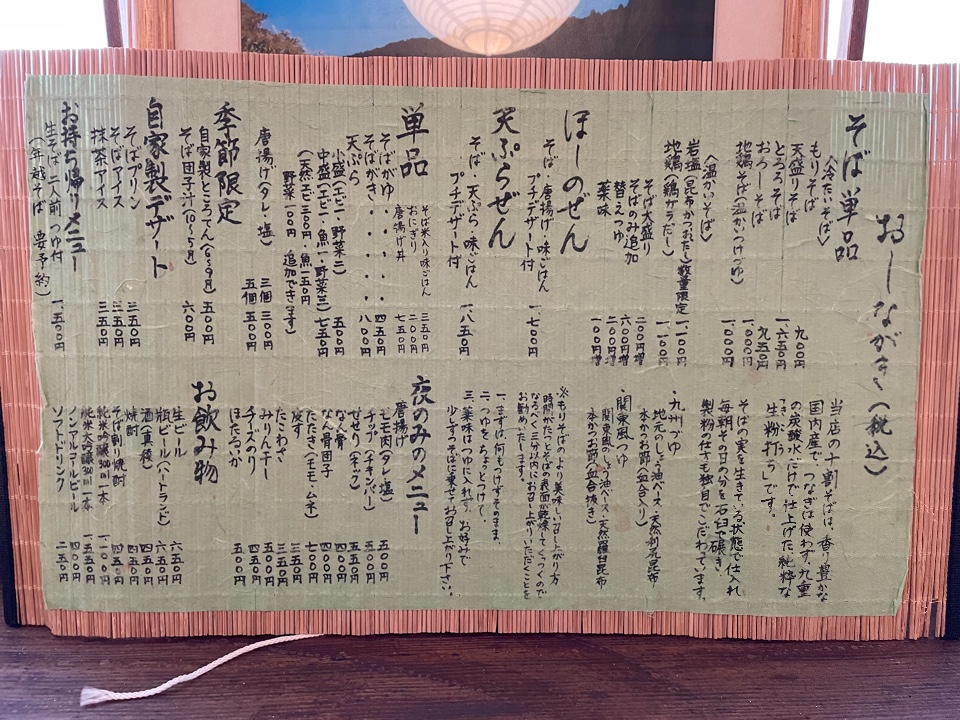 おしながき(税込)
そば単品
〈冷たいそば〉
もりそば 九〇〇円
天盛りそば 一、六五〇円
とろろそば 九五〇円
おろしそば 一、〇〇〇円
地鶏そば(温かいつけつゆ) 一、〇〇〇円
〈温かいそば〉
岩塩(昆布かつおだし)数量限定 一、一〇〇円
地鶏(鶏ガラだし) 一、一〇〇円
そば大盛り 二〇〇円増
そばのみ追加 六〇〇円増
替えつゆ 二〇〇円増
薬味 一〇〇円増
ほしのぜん
そば・唐揚げ・味ごはん
プチデザート付 一、七〇〇円
天ぷらぜん
そば・天ぷら・味ごはん
プチデザート付 一、八五〇円
単品
そば米入り味ごはん 三五〇円
おにぎり 二〇〇円
唐揚げ丼 七五〇円
そばがゆ・・・・ 四五〇円
そばがき・・・・ 八〇〇円
天ぷら
小盛(エビ一・野菜二) 五〇〇円
中盛(エビ一・魚一・野菜三) 七五〇円
(天然エビ三〇〇円 魚一五〇円
野菜一〇〇円 追加できます)
唐揚げ(タレ・塩) 三個 三〇〇円
五個 五〇〇円
季節限定
自家製ところてん(6~9月) 五〇〇円
そば団子汁(10~5月) 六〇〇円
自家製デザート
そばプリン 三五〇円
そばアイス 三五〇円
抹茶アイス 三五〇円
お持ち帰りメニュー
生そば二人前 つゆ付 一、五〇〇円
(年越そば 要予約)
当店の十割そばは、香り豊かな
国内産で、つなぎは使わず、九重
の炭酸水だけで仕上げた純粋な
「生粉打ち」です。
そばの実を生きている状態で仕入れ
毎朝その日の分を石臼で碾き、
製粉の仕方も独自でこだわっています。
・九州つゆ
地元のしょう油ベース・天然利尻昆布
本かつお節(血合入り)
・関東風つゆ
関東風のしょう油ベース・天然羅臼昆布
本かつお節(血合抜き)
※もりそばのより美味しい召し上がり方
時間がたつとそばの表面が乾燥してくっつくので
なるべく三分以内にお召し上がりいただくことを
お勧めいたします。
一、まずは、何もつけずそのまま。
二、つゆをちょっとつけて。
三、薬味はつゆに入れず、お好みで
少しずつそばに乗せてお召し上がり下さい。
夜のみのメニュー
唐揚げ
モモ肉(タレ・塩) 五〇〇円
チップ(チキンバー) 四〇〇円
せせり(ネック) 五五〇円
なん骨 四〇〇円
なん骨団子 五〇〇円
炭す
たたき(モモ・ムネ) 七〇〇円
たこわさ 三五〇円
みりん干し 五五〇円
チーズのり 四五〇円
ほたるいか 五〇〇円
お飲み物
生ビール 六五〇円
瓶ビール(ハートランド) 六五〇円
酒(真稜) 四五〇円
焼酎 四五〇円
そば割り焼酎 四五〇円
純米吟醸300ml一本 一、一〇〇円
純米大吟醸300ml一本 一、五五〇円
ノンアルコールビール 四〇〇円
ソフトドリンク 二五〇円